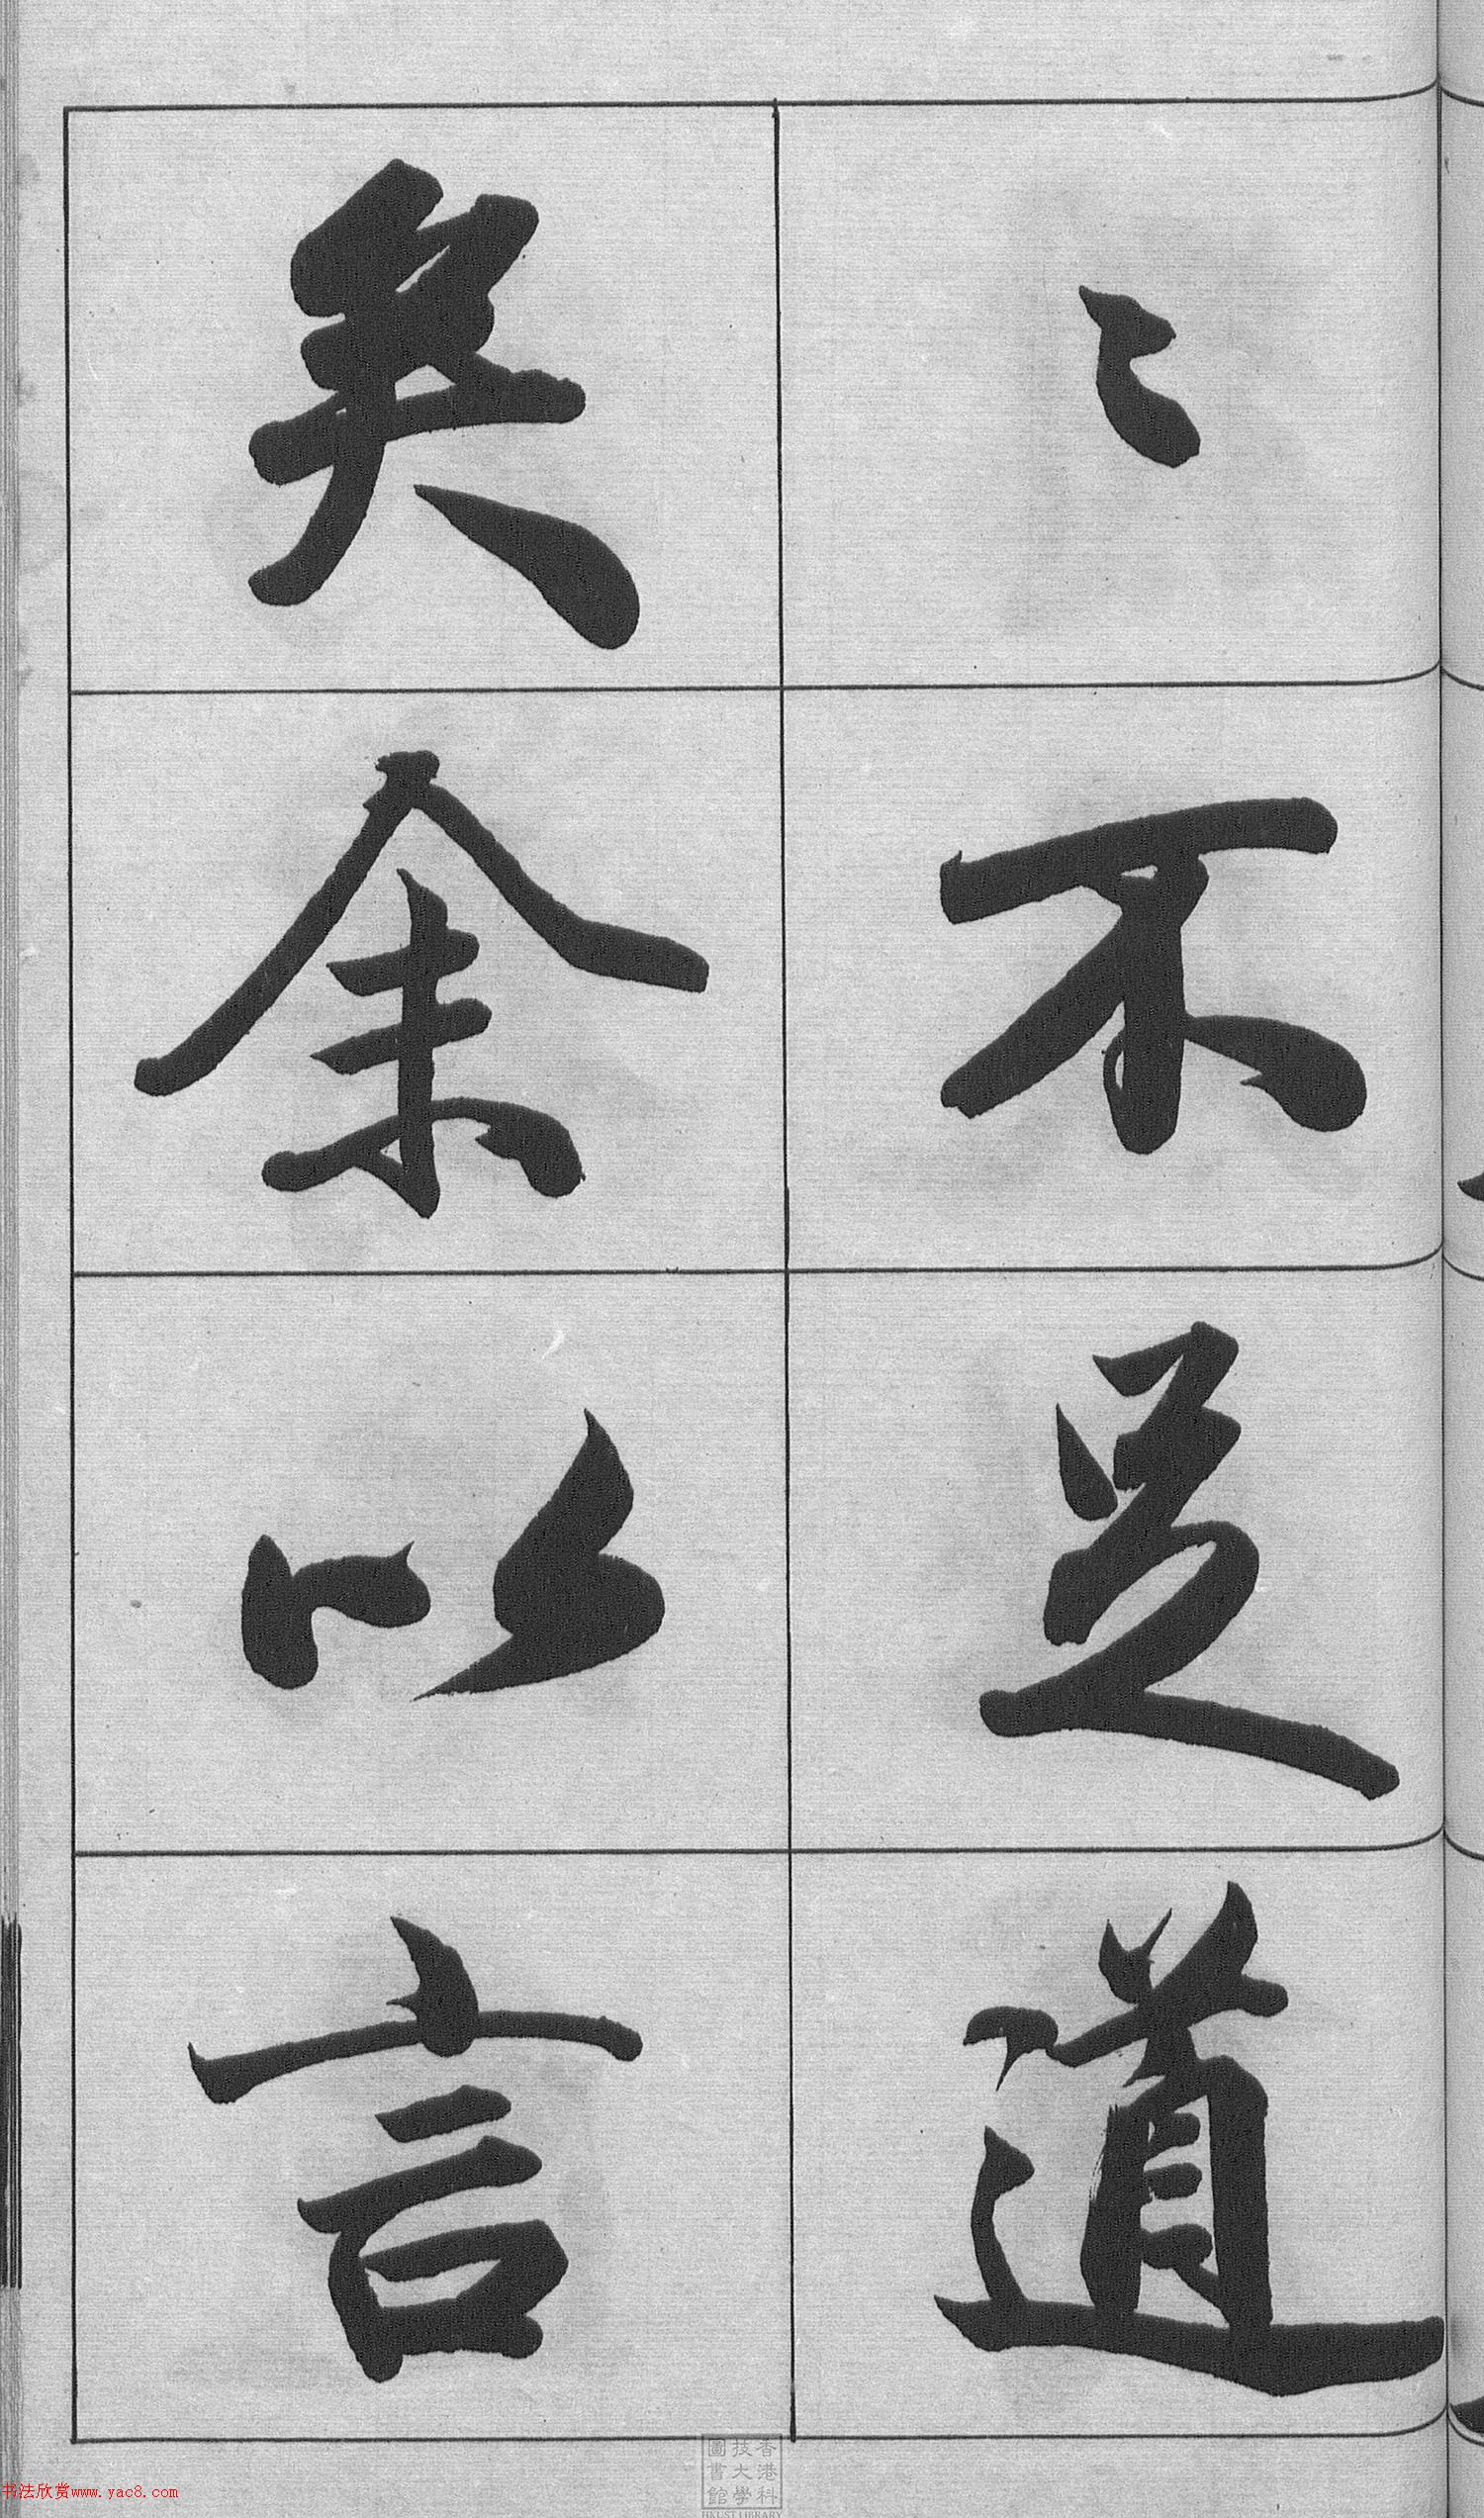 〻不足道
矣余以言
香港科
技大學
圖書館
HKUST LIBRARY
书法欣赏www.yac8.com